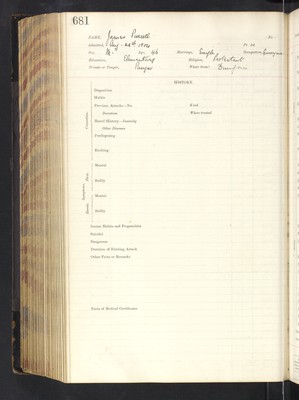 681
NAME, James No.
Admitted, Aug. 24th 1904 Pt. Ad.
Sex, M. Age, 46 Marriage, Single Occupation,
Education, Elementary Religion, Protestant
Private or Pauper, Pauper Whence Sent?
HISTORY.
Disposition
Habits
Previous Attacks—No. Kind
Duration Where treated
Hered. History—Insanity
Other Diseases
Predisposing
Exciting
Mental
Bodily
Mental
Bodily
Insane Habits and Propensities
Suicidal
Dangerous
Duration of Existing Attack
Other Facts or Remarks
Facts of Medical Certificates